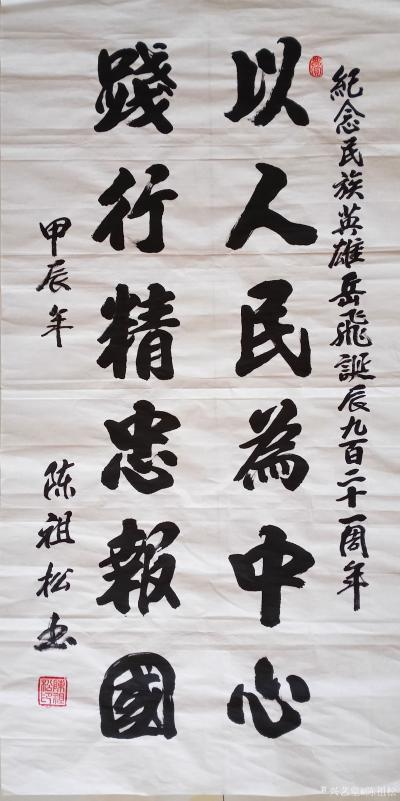 紀念民族英雄岳飛誕辰九百二十一周年
以人民為中心
踐行精忠報國
甲辰年
陈祖松书
陳祖松印